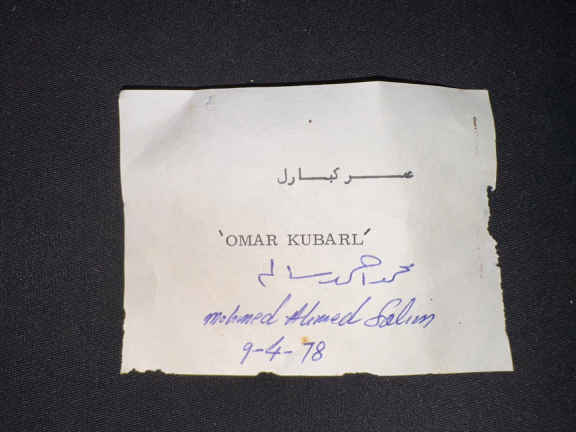 عمر كبارل
'OMAR KUBARL'
محمد احمد سالم
mohmed Ahmed Salim
9-4-78